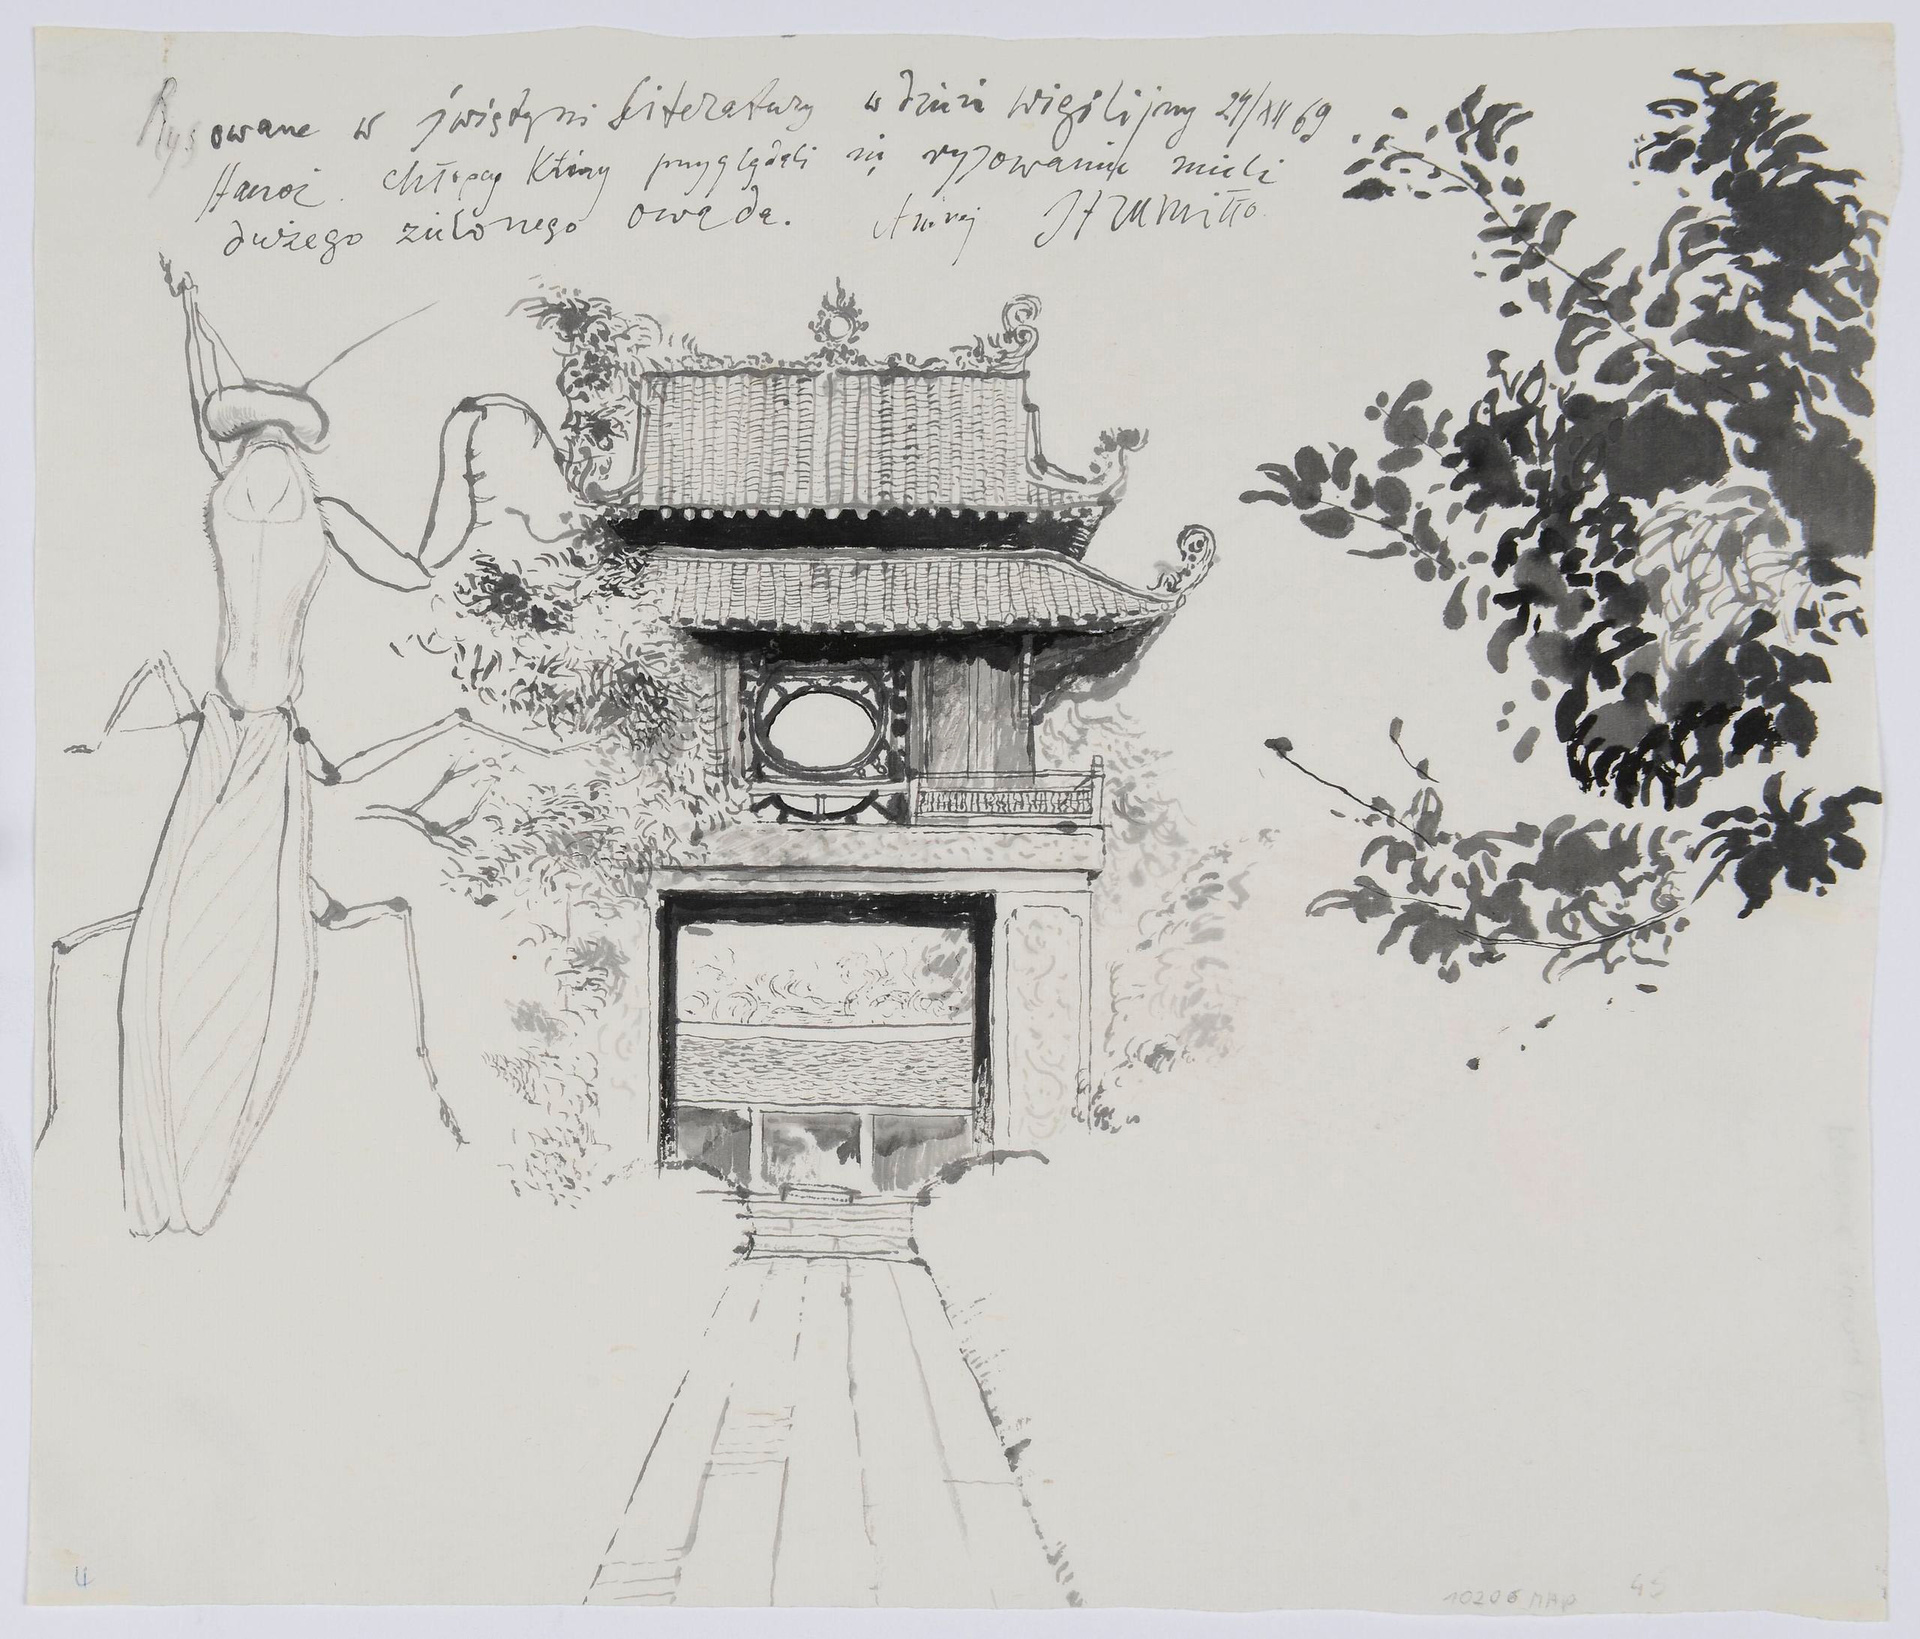 Rysowane w świątyni Literatury w dzień wigilijny 24/XII 69
Hanoi. chłopcy którzy przyglądali się rysowaniu mieli
dużego zielonego owada. Andrzej Strumiłło.
4
10206 MAP 45